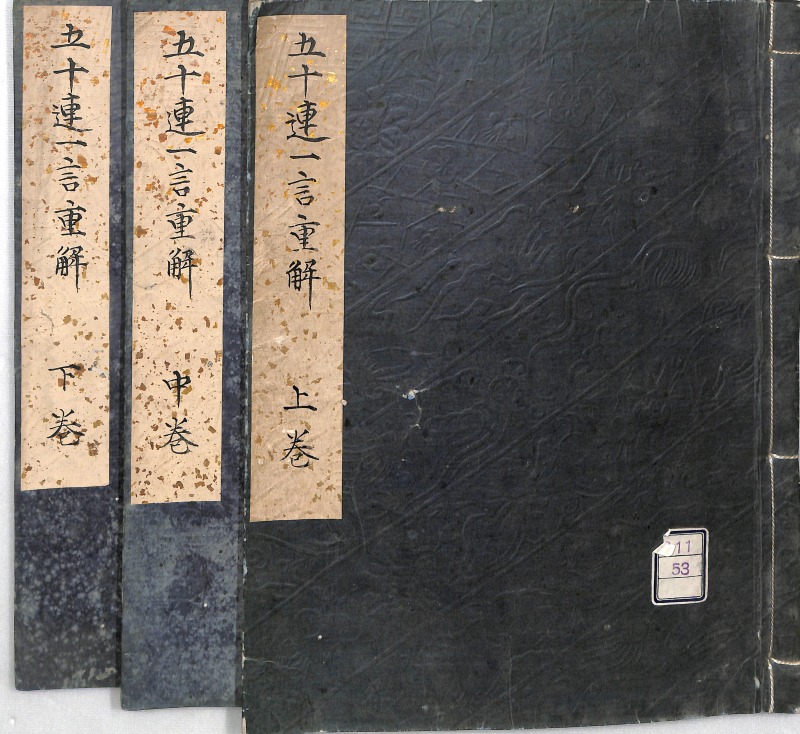 五十連一言重解 上巻
五十連一言重解 中巻
五十連一言重解 下巻
11
53